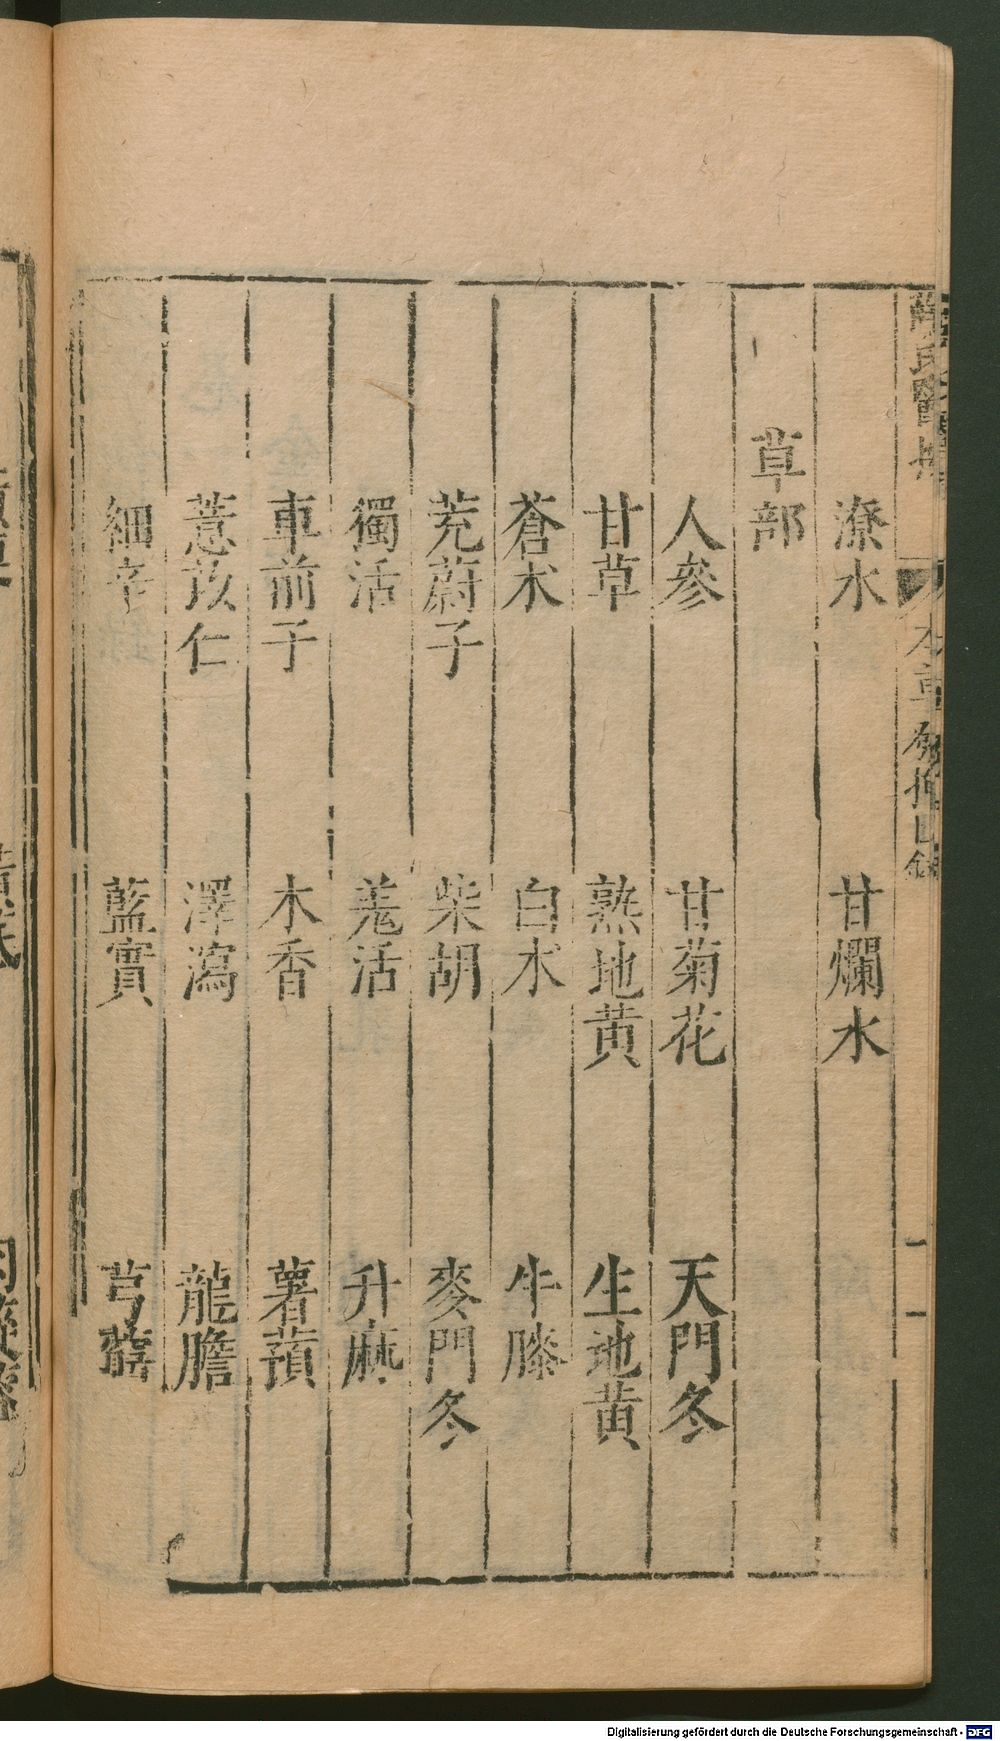 潦水　甘爛水
草部
人參　甘菊花　天門冬
甘草　熟地黄　生地黄
蒼朮　白朮　牛膝
茺蔚子　柴胡　麥門冬
獨活　羗活　升麻
車前子　木香　薯蕷
薏苡仁　澤瀉　龍膽
細辛　藍實　芎藭
氏醫按　本草發揮目錄　二
Digitalisierung gefördert durch die Deutsche Forschungsgemeinschaft - DFG